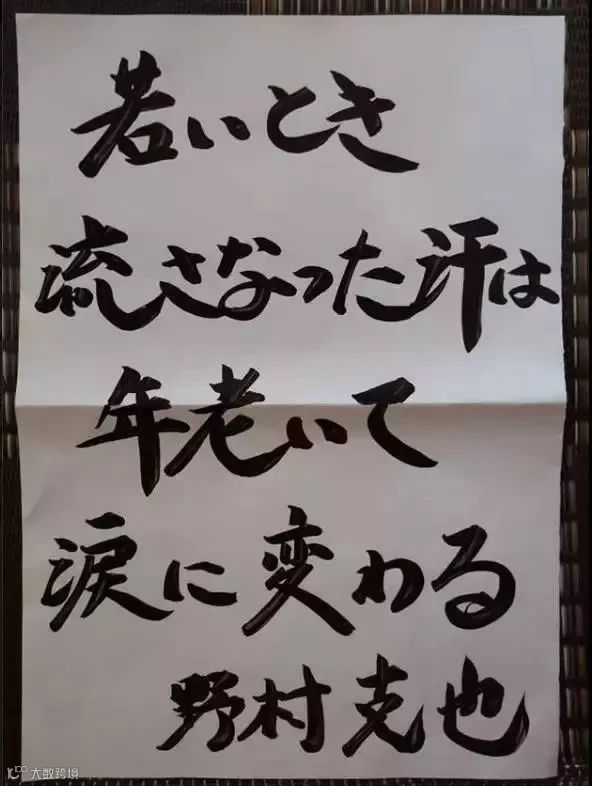 若いとき
流さなった汗は
年老いて
涙に変わる
野村克也
大数跨境